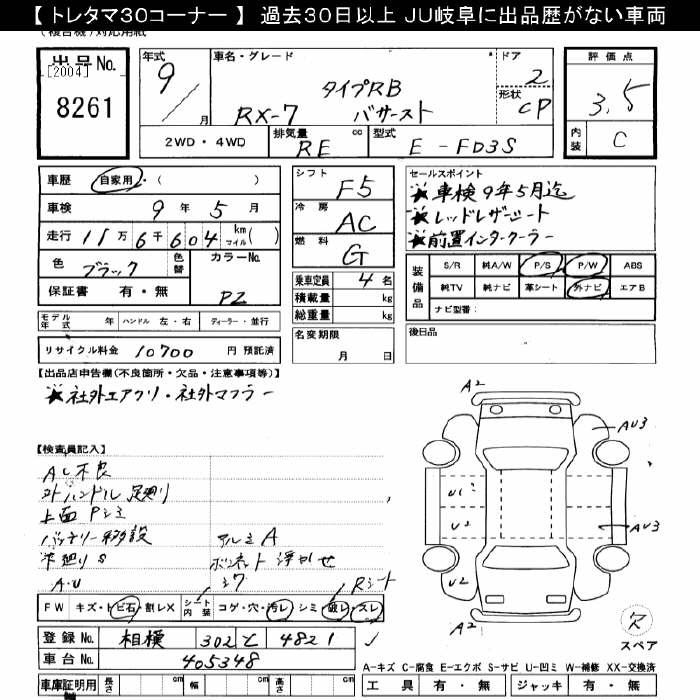 【 トレタマ30コーナー 】 過去30日以上 JU岐阜に出品歴がない車両
(複合機)対応用紙
出品No.
[2004]
8261
年式
9
月
車名・グレード
タイプRB
RX-7 バサースト
ドア
2
形状
CP
評価点
3.5
内装
C
2WD・4WD
排気量 cc
RE
型式
E-FD3S
車歴 自家用・( )
車検 9年5月
走行 11万6千604 km マイル( )
色 ブラック
色替
カラーNo.
PZ
保証書 有・無
モデル年式 年 ハンドル 左・右 ディーラー・並行
リサイクル料金 10700 円 預託済
シフト
F5
冷房
AC
燃料
G
乗車定員 4 名
積載量 kg
総重量 kg
名変期限
月 日
セールスポイント
★車検9年5月迄
★レッドレザーシート
★前置インタークーラー
装備品
S/R 純A/W P/S P/W ABS
純TV 純ナビ 革シート 外ナビ エアB
ナビ型番:
後日品
【出品店申告欄(不良箇所・欠品・注意事項等)】
★社外エアクリ・社外マフラー
【検査員記入】
AC不良
外ハンドル 足廻り
上面 Pシミ
バッテリー移設 アルミ A
下廻り S ボンネット 浮かせ
A・U シワ Rシート
FW キズ・トビ石・割レX
シート内装 コゲ・穴・汚レ・シミ 破レ・スレ
登録No. 相模 302 と 4821
車台No. 405348
車庫証明用 長さ cm 幅 cm 高さ cm
A2
AU3
U1
U2
AU3
U2
A2
欠
スペア
A-キズ C-腐食 E-エクボ S-サビ U-凹ミ W-補修 XX-交換済
工具 有・無 ジャッキ 有・無